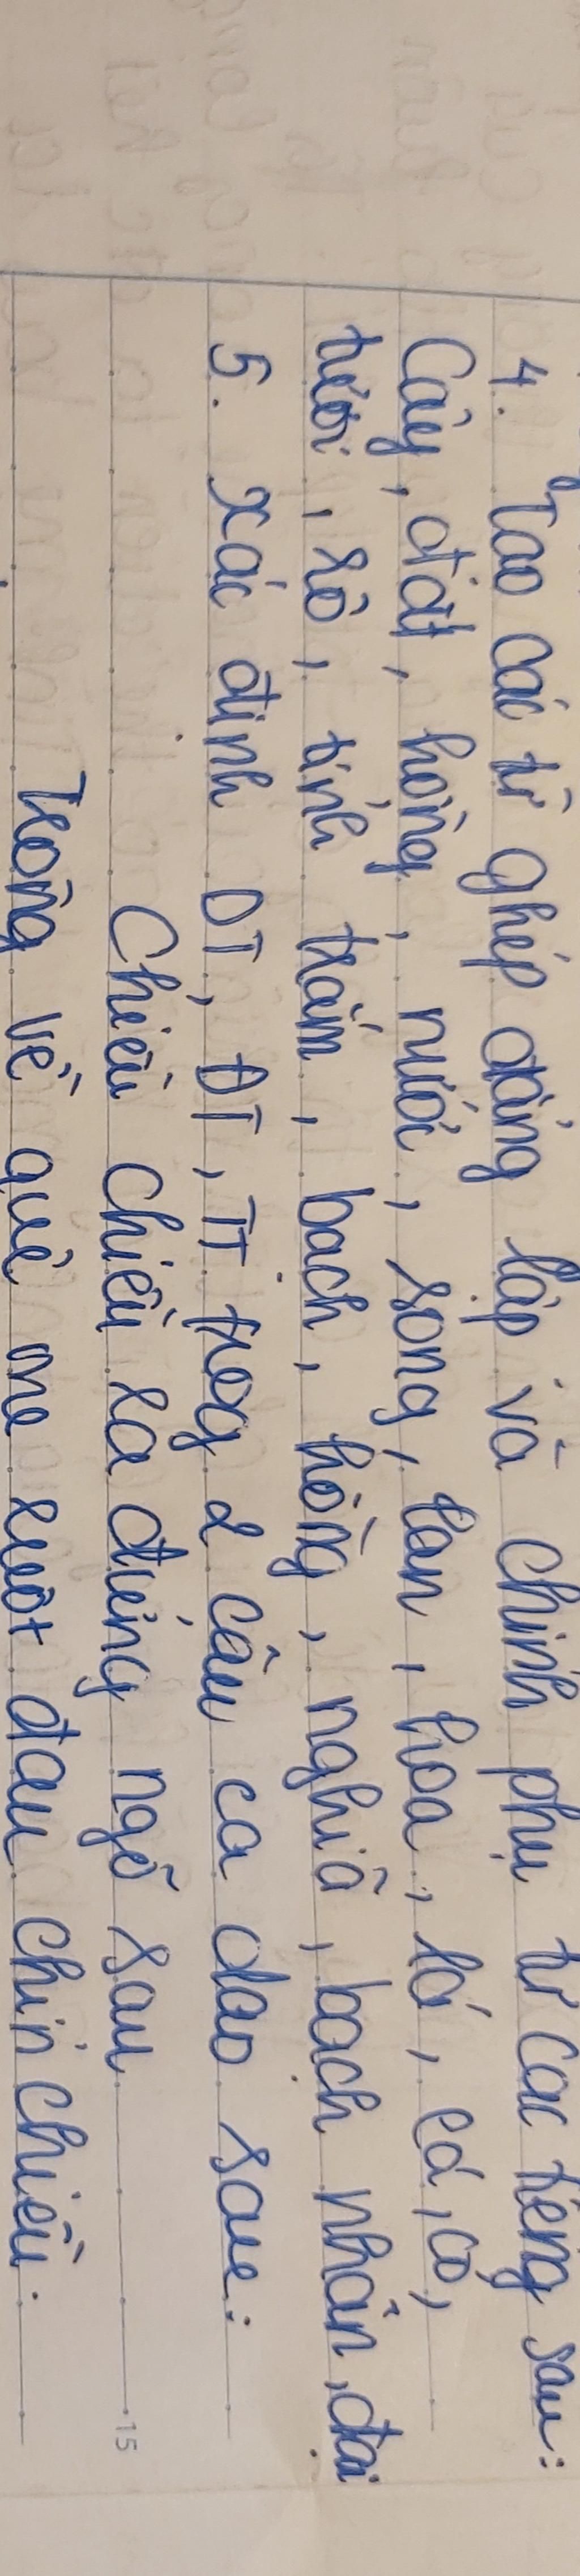 4. Tạo các từ ghép đẳng lập và chính phụ từ các tiếng sau:
Cây, đất, hỏng, nước, sông, lan, hoa, lá, cá, cỏ,
tươi, rô, tính trầm, bạch, hồng, nghĩa, bạch nhân, đại
5. Xác định DT, ĐT, TT trog 2 câu ca dao sau:
Chiều chiều ra đứng ngõ sau
Trông về quê mẹ ruột đau chín chiều.
15